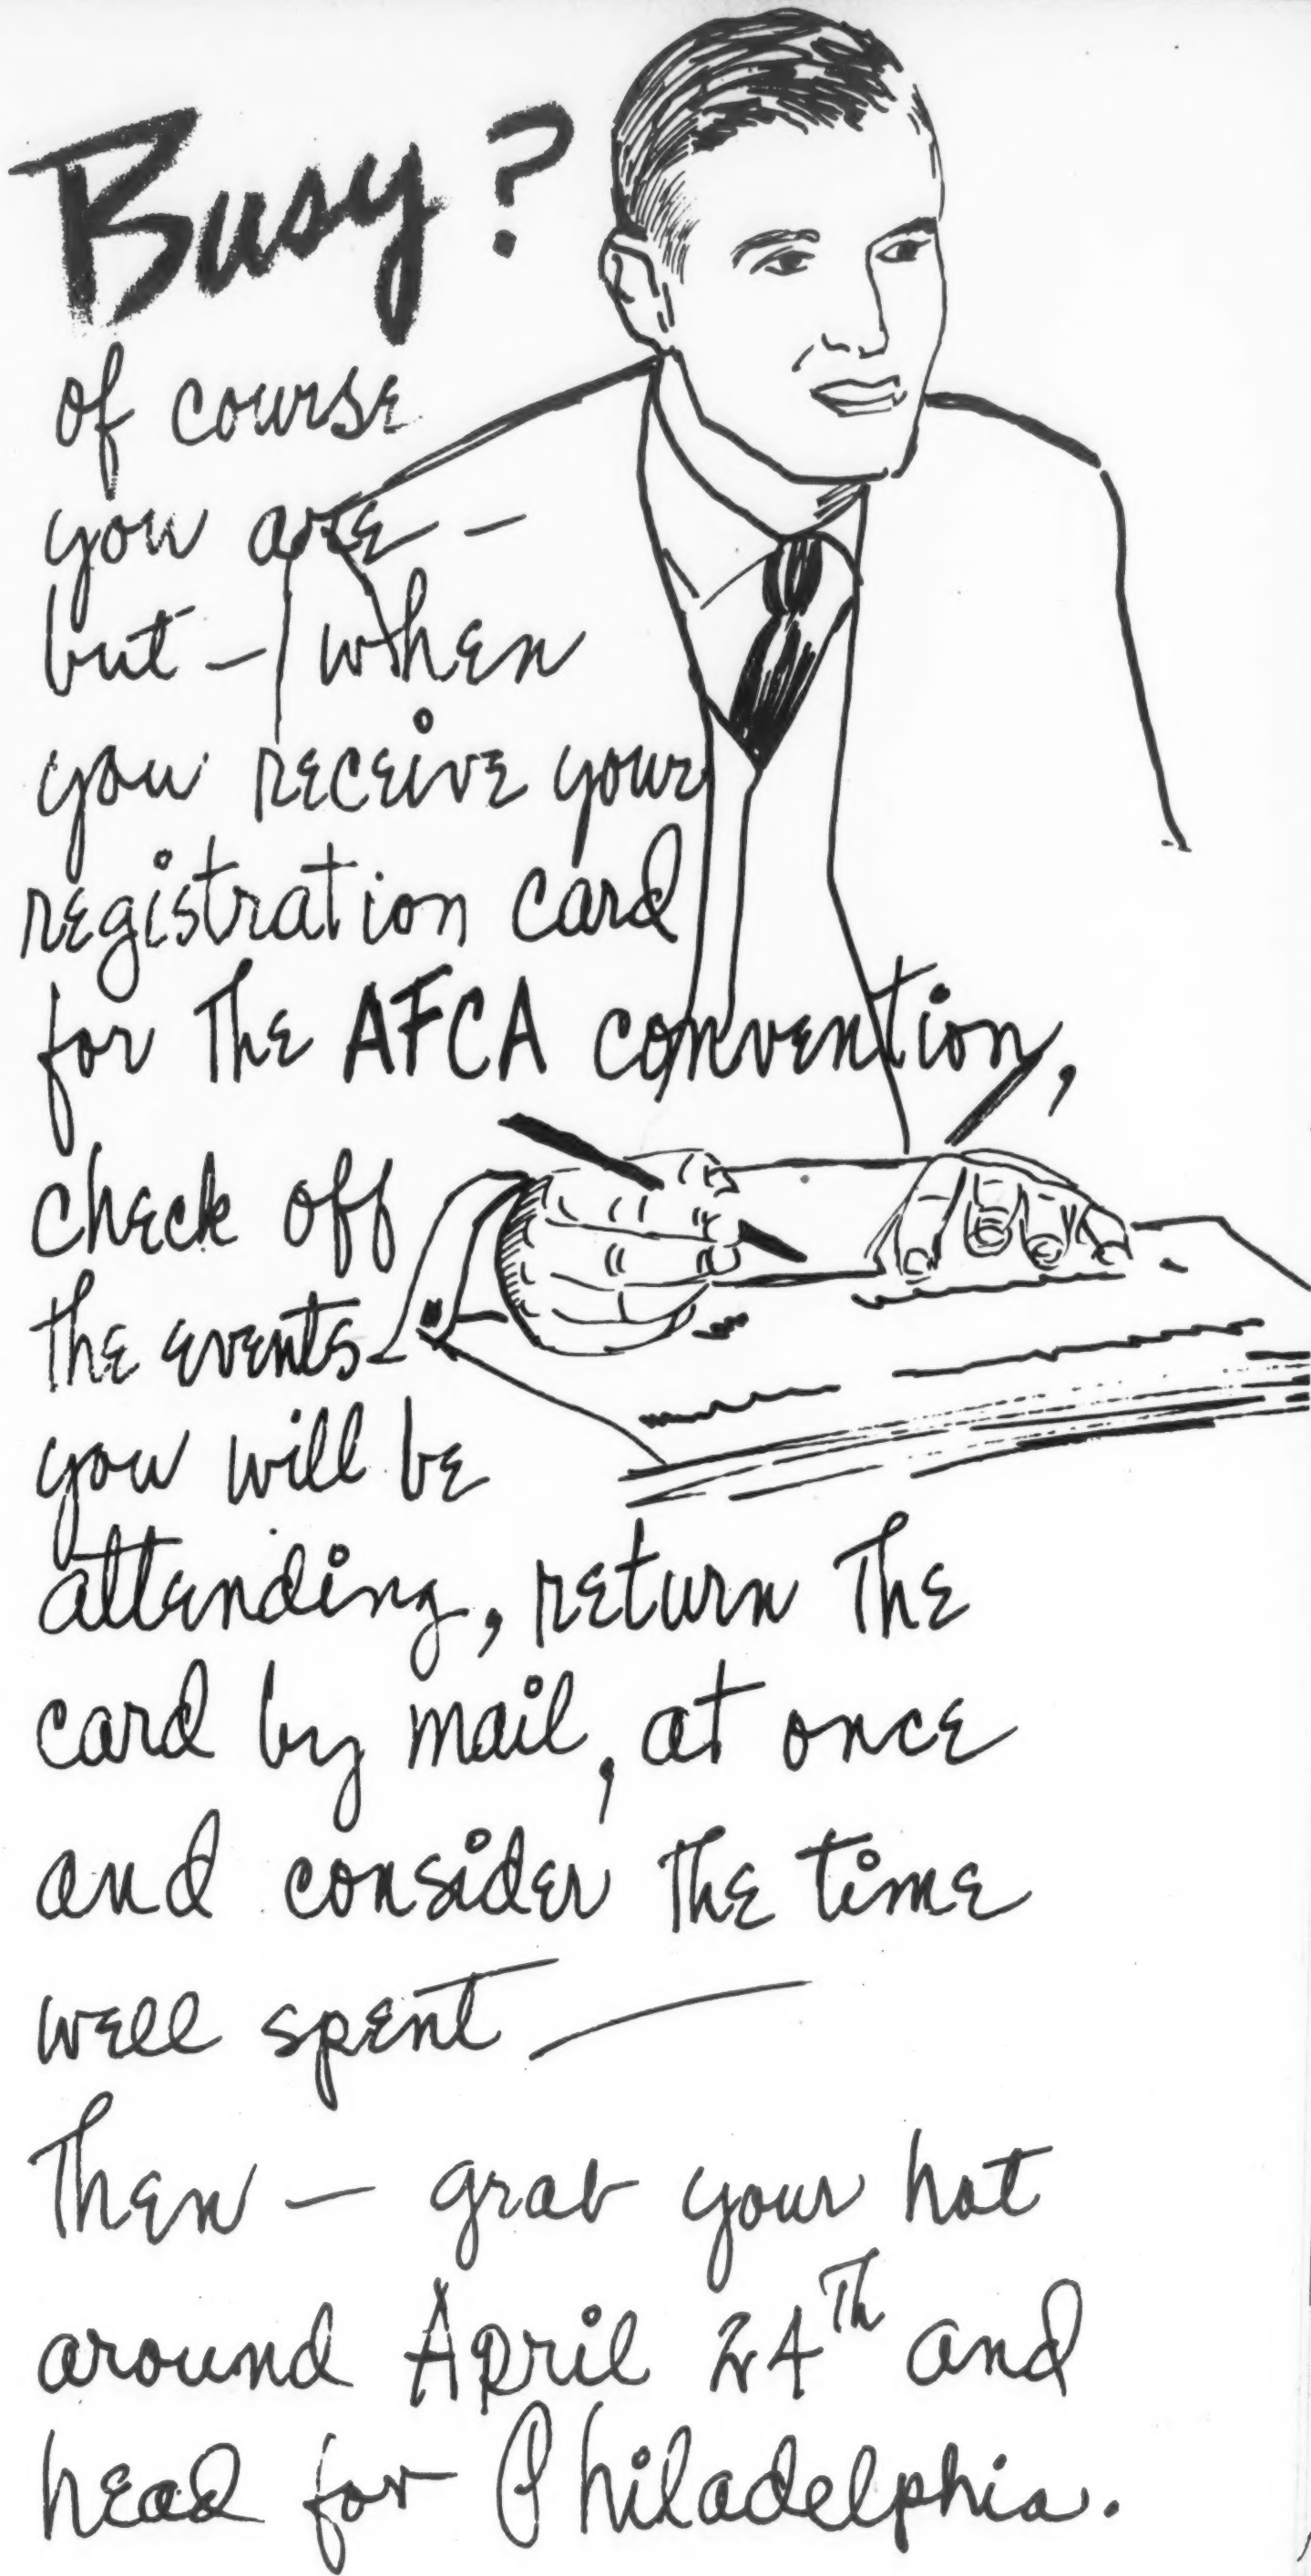 Busy?
of course
you are - -
but - when
you receive your
registration card
for the AFCA convention,
check off
the events
you will be
attending, return the
card by mail, at once
and consider the time
well spent —
Then — grab your hat
around April 24th and
head for Philadelphia.